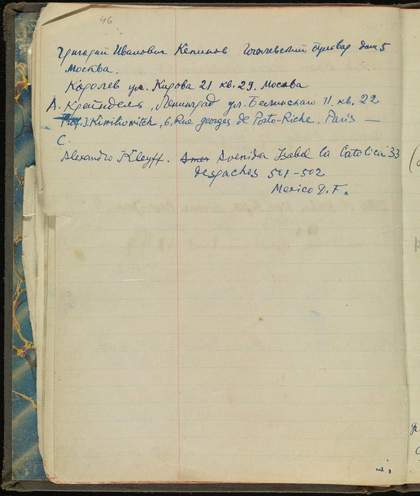 46
Григорий Иванович Кепинов Гоголевский бульвар дом 5
Москва.
Королев ул. Кирова 21 кв. 29. Москва
А. Крейндель, Ленинград ул. Белинского 11. кв. 22
Prof. J. 6, Rue Georges de Porto-Riche. Paris —
C.
Alexandro Kleyff. Avenida Isabel la Catolica 33
despachos 501-502
Mexico D.F.